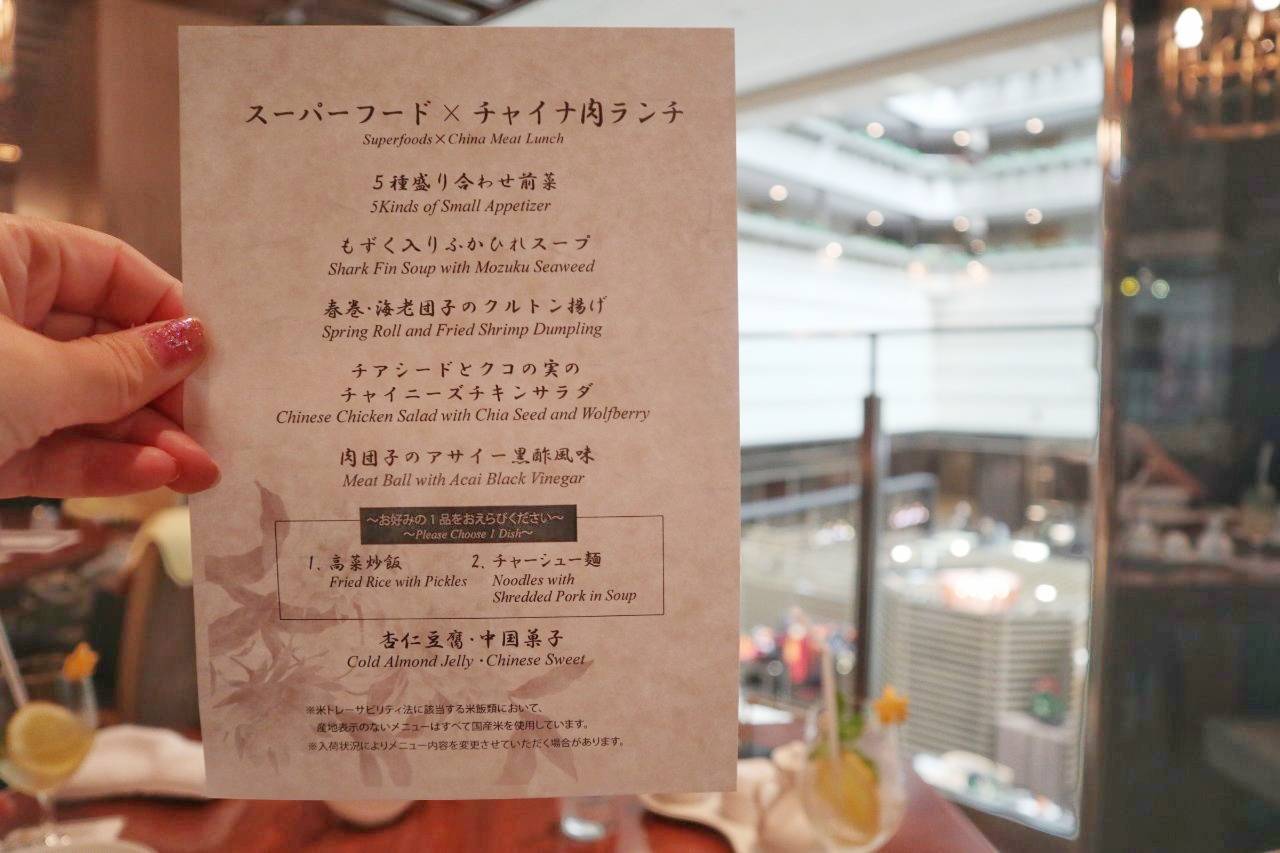 スーパーフード × チャイナ肉ランチ
Superfoods×China Meat Lunch
5種盛り合わせ前菜
5Kinds of Small Appetizer
もずく入りふかひれスープ
Shark Fin Soup with Mozuku Seaweed
春巻・海老団子のクルトン揚げ
Spring Roll and Fried Shrimp Dumpling
チアシードとクコの実の
チャイニーズチキンサラダ
Chinese Chicken Salad with Chia Seed and Wolfberry
肉団子のアサイー黒酢風味
Meat Ball with Acai Black Vinegar
〜お好みの1品をおえらびください〜
〜Please Choose 1 Dish〜
1. 高菜炒飯
Fried Rice with Pickles
2. チャーシュー麺
Noodles with
Shredded Pork in Soup
杏仁豆腐・中国菓子
Cold Almond Jelly・Chinese Sweet
※米トレーサビリティ法に該当する米飯類において、
産地表示のないメニューはすべて国産米を使用しています。
※入荷状況によりメニュー内容を変更させていただく場合があります。